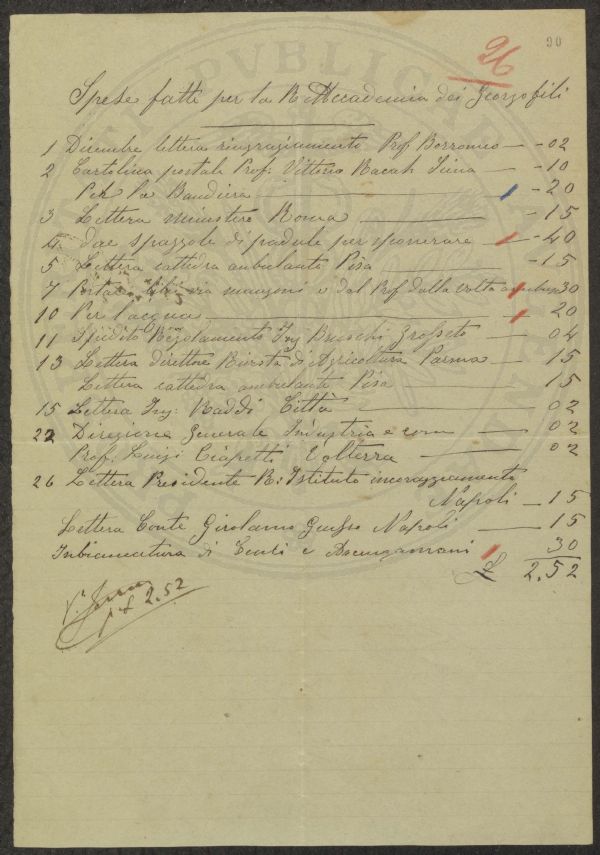 26
90
Spese fatte per la R. Accademia dei Georgofili
1 Dicembre lettera ringraziamento Prof Borromeo - 02
2 Cartolina postale Prof: Vittorio Siena - 10
Per la Bandiera - 20
3 Lettera ministero Roma - 15
4 due spazzole di padule per spolverare - 40
5 Lettera cattedra ambulante Pisa - 15
7 libreria manzoni e dal Prof dalla volta 30
10 Per l'acqua 20
11 Spedito Regolamento Ing Grosseto - 04
13 Lettera direttore Rivista di Agricoltura Parma - 15
Lettera cattedra ambulante Pisa 15
15 Lettera Ing: Raddi Città 02
22 Direzione Generale Industria e com - 02
Prof. Luigi Ciapetti Volterra - 02
26 Lettera Presidente R: Istituto incoraggiamento
Napoli - 15
Lettera Conte Girolamo Napoli - 15
Inbiancatura di e Asciugamani 30
£ 2,52
£ 2.52